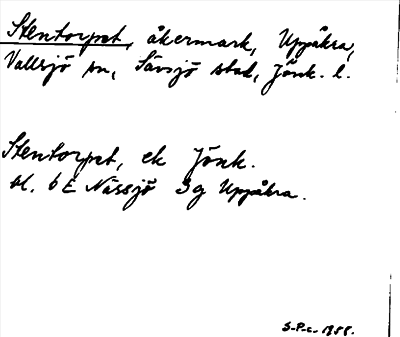 Stentorpet, åkermark, Uppåkra,
Vallsjö sn, Sävsjö stad, Jönk. l.
Stentorpet, ek Jönk.
bl. 6 E Nässjö 3g Uppåkra.
S-P.c. 1988.